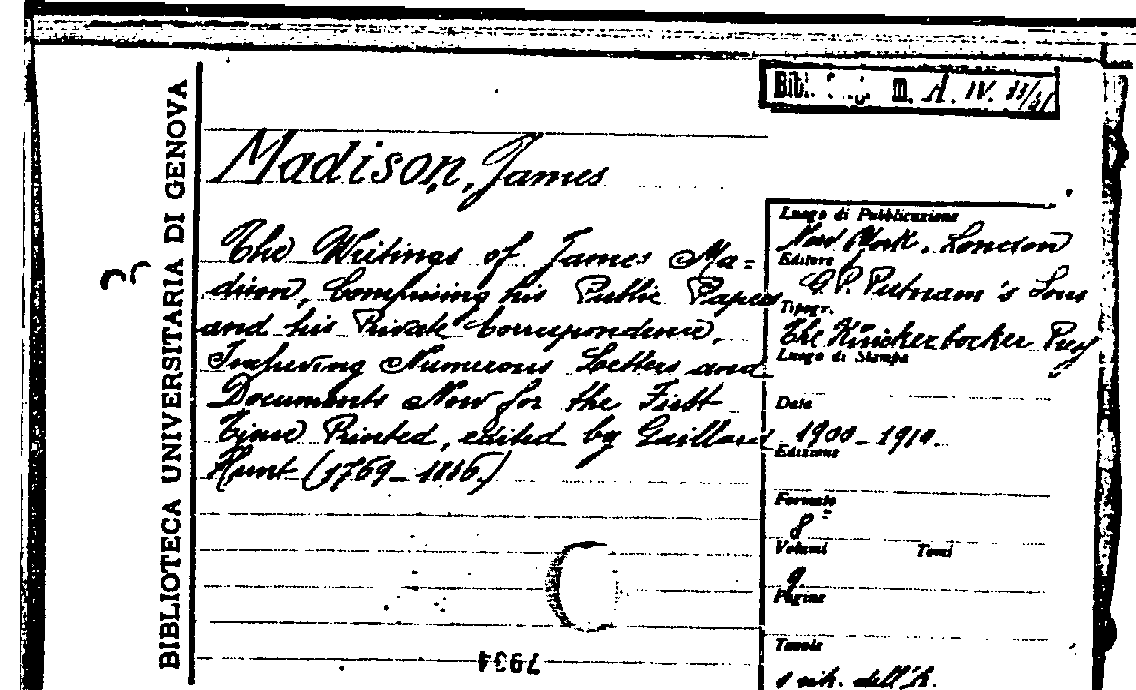 BIBLIOTECA UNIVERSITARIA DI GENOVA
m. A. IV. 33/
Madison, James
The Writings of James Ma=
dison, Comprising his Public Papers
and his Private Correspondence,
Including Numerous Letters and
Documents Now for the First
Time Printed, edited by Gaillard
Hunt (1769-1836)
Luogo di Pubblicazione
New York, London
Editore
G. P. Putnam's Sons
Tipogr.
The Knickerbocker Press
Luogo di Stampa
Data
1900-1910.
Edizione
Formato
8°
Volumi Tomi
9.
Pagine
Tavole
1 rit. dell'A.
7934